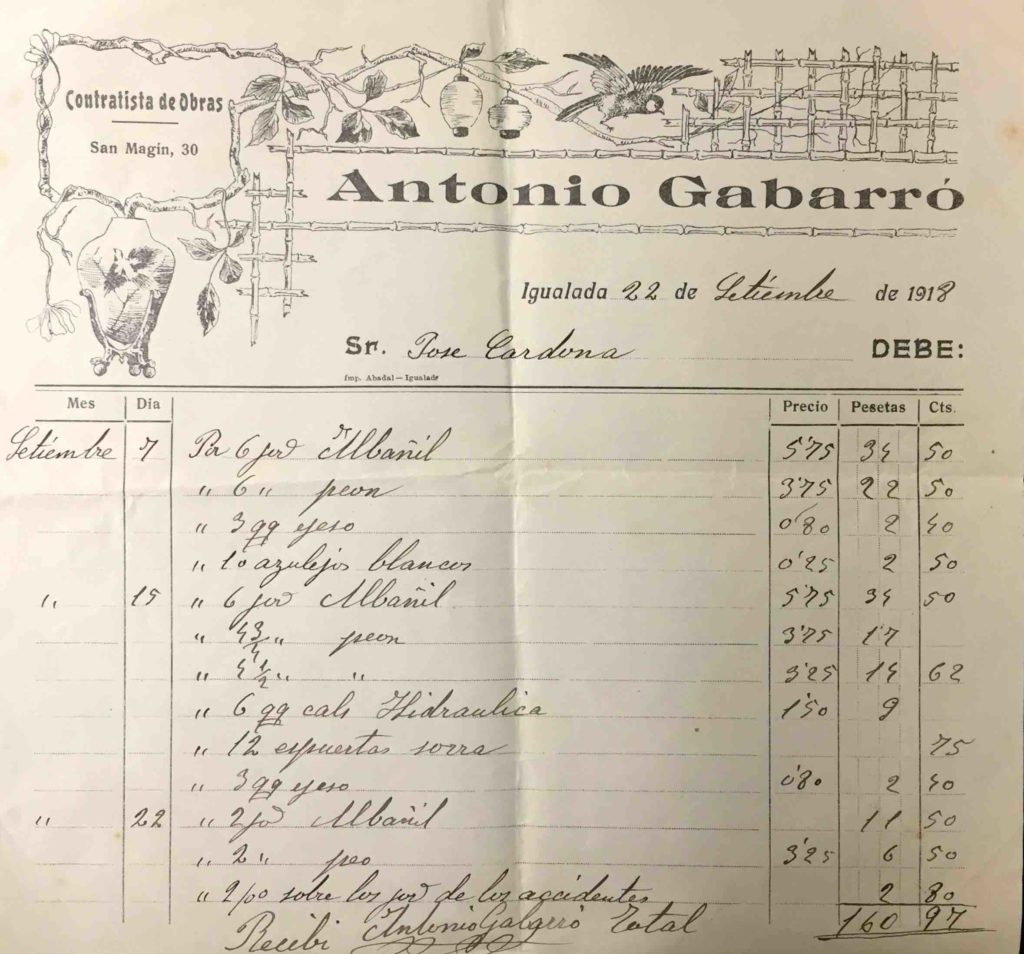 Contratista de Obras
San Magín, 30
Antonio Gabarró
Igualada 22 de Setiembre de 1918
Sr. Jose Cardona DEBE:
Imp. Abadal—Igualada
Mes Dia Precio Pesetas Cts.
Setiembre 7 Por 6 jor Albañil 5'75 34 50
" 6 " peon 3'75 22 50
" 3 qq yeso 0'80 2 40
" 10 azulejos blancos 0'25 2 50
" 15 " 6 jor Albañil 5'75 34 50
" 4 3/4 " peon 3'75 17
" 4 1/2 " " 3'25 14 62
" 6 qq cals Hidraulica 1'50 9
" 12 espuertas sorra 75
" 3 qq yeso 0'80 2 40
" 22 " 2 jor Albañil 11 50
" 2 " peo 3'25 6 50
" 2 p00 sobre los jor de los accidentes 2 80
Recibi Antonio Total 160 97